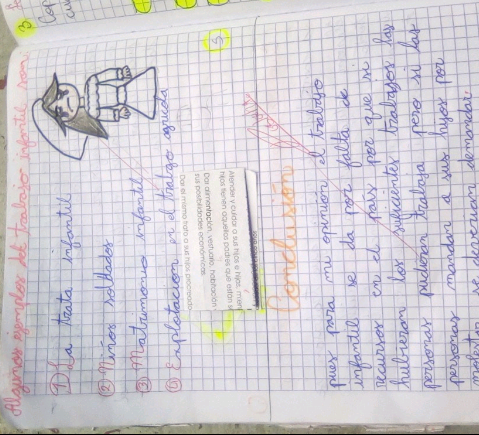 Algunos ejemplos del trabajo infantil son
① La trata infantil
② Niños soldados
③ Matrimonio infantil
④ Explotación en el trabajo
5
Atender y cuidar a sus hijos e hijas
hijos tienen aquellos padres que están
Dar alimentación, vestido, habitación
sus posibilidades económicas.
Dar el mismo trato a sus hijos
Conclusión
pues para mi opinión el trabajo
infantil se da por falta de
recursos en el país por que si
hubieran los suficientes trabajos las
personas pudieran trabaja pero si las
personas mandan a sus hijos por
se deberían demandar.
3